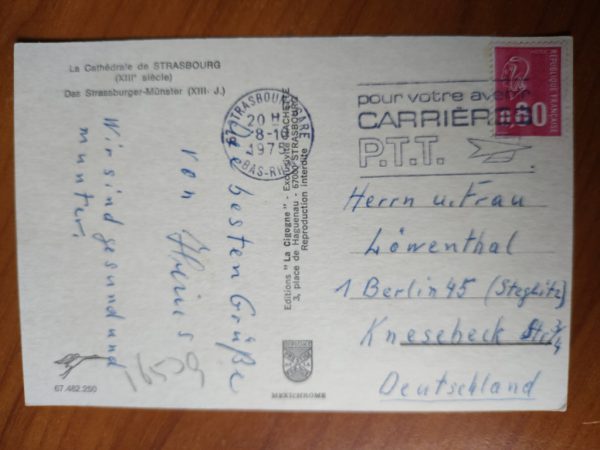 La Cathédrale de STRASBOURG
(XIIIᵉ siècle)
Das Strassburger-Münster (XIII. J.)
Die besten Grüße
von
Wir sind gesund und
munter.
16509
67.482.250
Editions "La Cigogne" - Exclusivité HACHETTE
3, place de Haguenau - 67000 STRASBOURG
Reproduction interdite
MEXICHROME
STRASBOURG GARE
20 H
8-10
1975
BAS-RHIN
pour votre avenir
CARRIÈRES
P.T.T.
REPUBLIQUE FRANÇAISE
0.80
Herrn u. Frau
Löwenthal
1 Berlin 45 (Steglitz)
Knesebeck Str 3/4
Deutschland